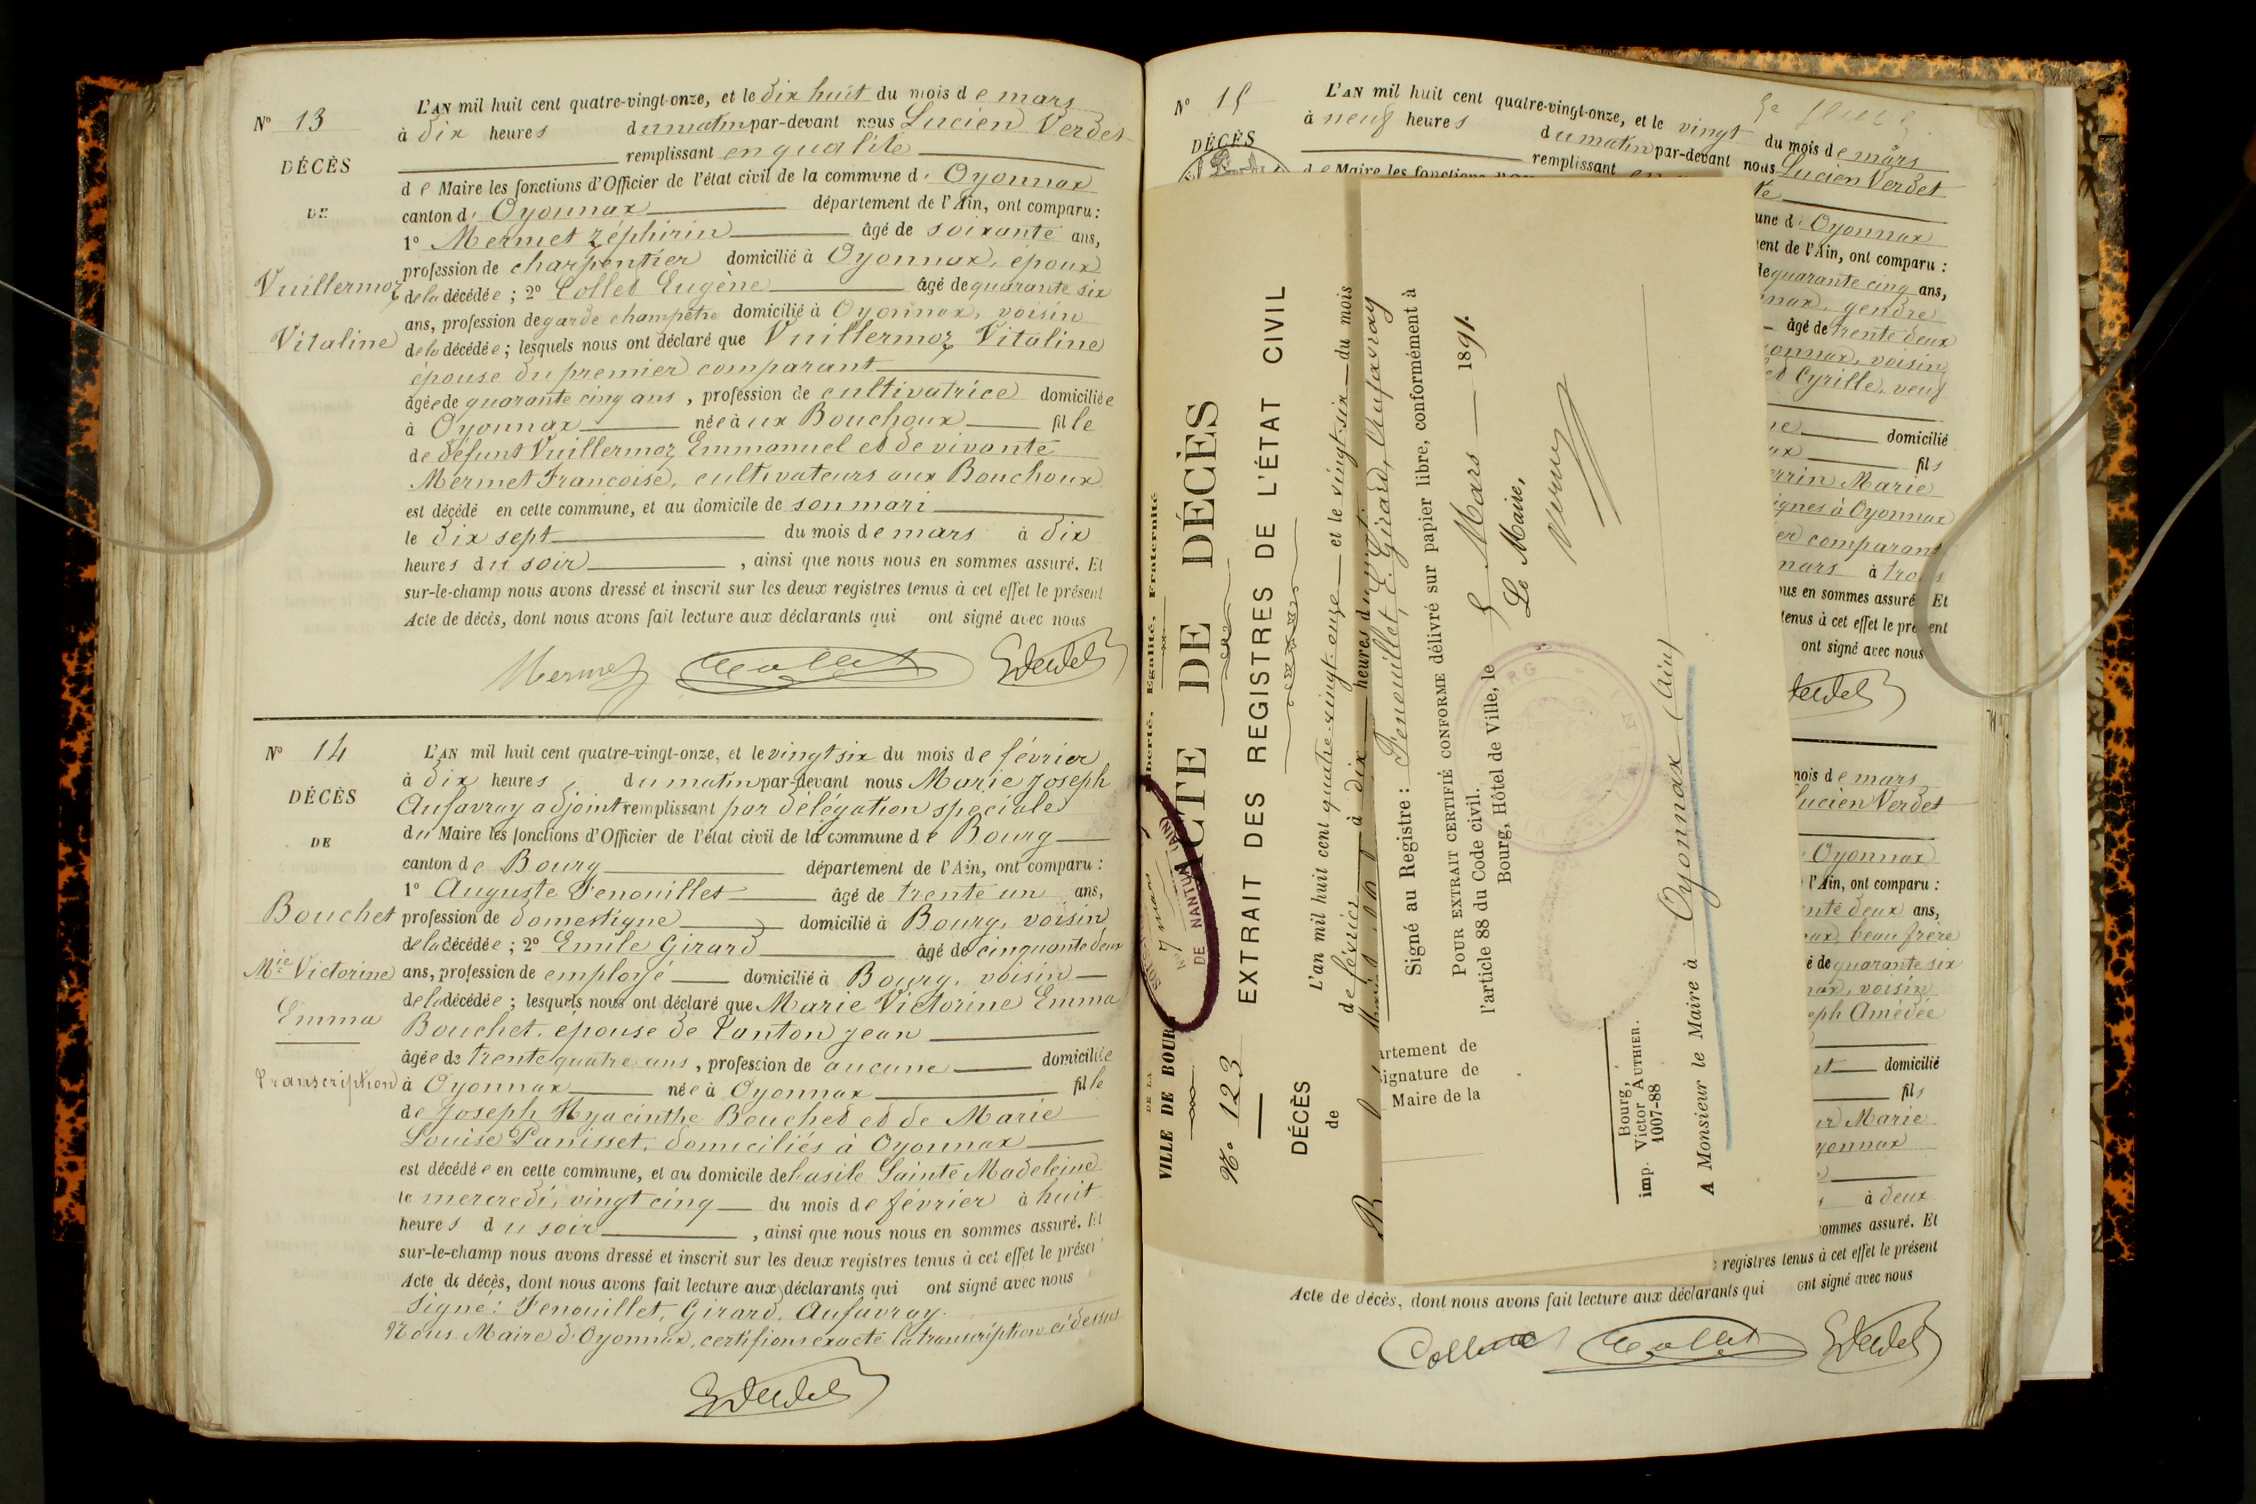 N° 13
DÉCÈS
DE
Vuillermoz
Vitaline
L'AN mil huit cent quatre-vingt-onze, et le dix huit du mois de mars
à dix heures du matin par-devant nous Lucien Verdet
remplissant en qualité
de Maire les fonctions d'Officier de l'état civil de la commune d' Oyonnax
canton d' Oyonnax département de l'Ain, ont comparu :
1° Mermet Zéphirin âgé de soixante ans,
profession de charpentier domicilié à Oyonnax, époux
de la décédée ; 2° Collet Eugène âgé de quarante six
ans, profession de garde champêtre domicilié à Oyonnax, voisin
de la décédée ; lesquels nous ont déclaré que Vuillermoz Vitaline
épouse du premier comparant
âgée de quarante cinq ans, profession de cultivatrice domiciliée
à Oyonnax née à ux Bouchoux fille
de défunt Vuillermoz Emmanuel et de vivante
Mermet Francoise, cultivateurs aux Bouchoux
est décédé en cette commune, et au domicile de son mari
le dix sept du mois de mars à dix
heures du soir, ainsi que nous nous en sommes assuré. Et
sur-le-champ nous avons dressé et inscrit sur les deux registres tenus à cet effet le présent
Acte de décès, dont nous avons fait lecture aux déclarants qui ont signé avec nous
Mermet Collet LVerdet
N° 14
DÉCÈS
DE
Bouchet
Mie Victorine
Emma
Transcription
L'AN mil huit cent quatre-vingt-onze, et le vingt six du mois de février
à dix heures du matin par-devant nous Marie Joseph
Aufavray adjoint remplissant par délégation spéciale
du Maire les fonctions d'Officier de l'état civil de la commune de Bourg
canton de Bourg département de l'Ain, ont comparu :
1° Auguste Fenouillet âgé de trente un ans,
profession de domestique domicilié à Bourg, voisin
de la décédée ; 2° Emile Girard âgé de cinquante deux
ans, profession de employé domicilié à Bourg, voisin
de la décédée ; lesquels nous ont déclaré que Marie Victorine Emma
Bouchet, épouse de Tanton Jean
âgée de trente quatre ans, profession de aucune domiciliée
à Oyonnax née à Oyonnax fille
de Joseph Hyacinthe Bouchet et de Marie
Louise Panisset, domiciliés à Oyonnax
est décédée en cette commune, et au domicile de l'asile Sainte Madeleine
le mercredi, vingt cinq du mois de février à huit
heures du soir, ainsi que nous nous en sommes assuré. Et
sur-le-champ nous avons dressé et inscrit sur les deux registres tenus à cet effet le présent
Acte de décès, dont nous avons fait lecture aux déclarants qui ont signé avec nous
Signé : Fenouillet, Girard, Aufavray.
Nous Maire d'Oyonnax, certifions exacte la transcription ci dessus
LVerdet
N° 15
DÉCÈS
L'AN mil huit cent quatre-vingt-onze, et le vingt du mois de mars
à neuf heures du matin par-devant nous Lucien Verdet
remplissant en
de Maire les fonctions
une d' Oyonnax
ent de l'Ain, ont comparu :
de quarante cinq ans,
nax, gendre
âgé de trente deux
onnax, voisin
et Cyrille, veuf
domicilié
ax fils
rrin Marie
ignes à Oyonnax
er comparant
mars à trois
ous en sommes assuré. Et
tenus à cet effet le présent
ont signé avec nous
erdet
VILLE DE BOURG
DE LA
berté, Egalité, Fraternité
ACTE DE DÉCÈS
N° 123
EXTRAIT DES REGISTRES DE L'ÉTAT CIVIL
DÉCÈS
de
L'an mil huit cent quatre-vingt-onze et le vingt-six du mois
de février à dix heures du
DE NANTUA (AIN)
7 mars
Signé au Registre : Fenouillet, E. Girard, Aufavray
POUR EXTRAIT CERTIFIÉ CONFORME délivré sur papier libre, conformément à
l'article 88 du Code civil.
Bourg, Hôtel de Ville, le 5 Mars 1891.
Le Maire,
artement de
ignature de
Maire de la
Bourg,
imp. Victor AUTHIER.
1007-88
A Monsieur le Maire à Oyonnax (Ain)
mois de mars
Lucien Verdet
Oyonnax
l'Ain, ont comparu :
ente deux ans,
ax, beau frère
é de quarante six
nax, voisin
eph Amédée
domicilié
fils
Marie
yonnax
à deux
ommes assuré. Et
registres tenus à cet effet le présent
Acte de décès, dont nous avons fait lecture aux déclarants qui ont signé avec nous
Collet LVerdet